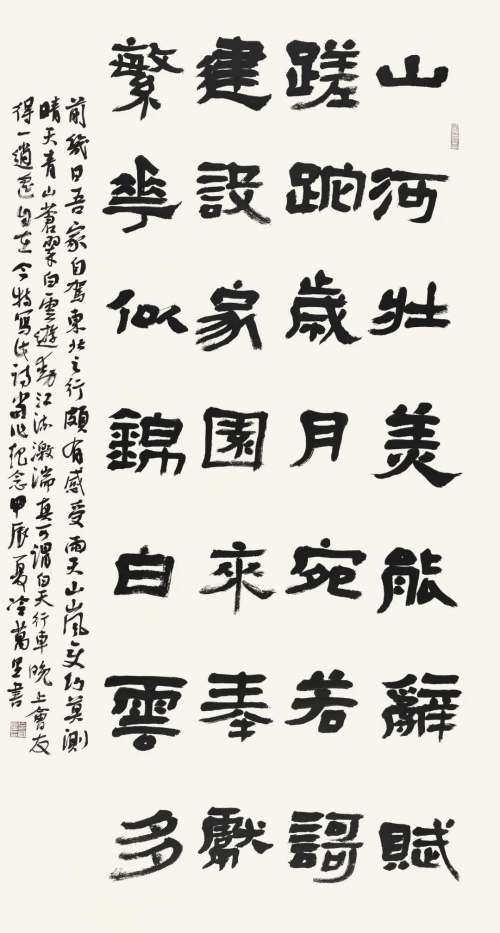 山河壯美能辭賦
蹉跎歲月宛若謌
建設家園來奉獻
繁華似錦白雲多
前幾日吾家自驾東北之行頗有感受雨天山嵐变幻莫测
晴天青山蒼翠白雲遊動江流激湍真可謂白天行車晚上會友
得一逍遥自在今特寫此詩當作紀念甲辰夏